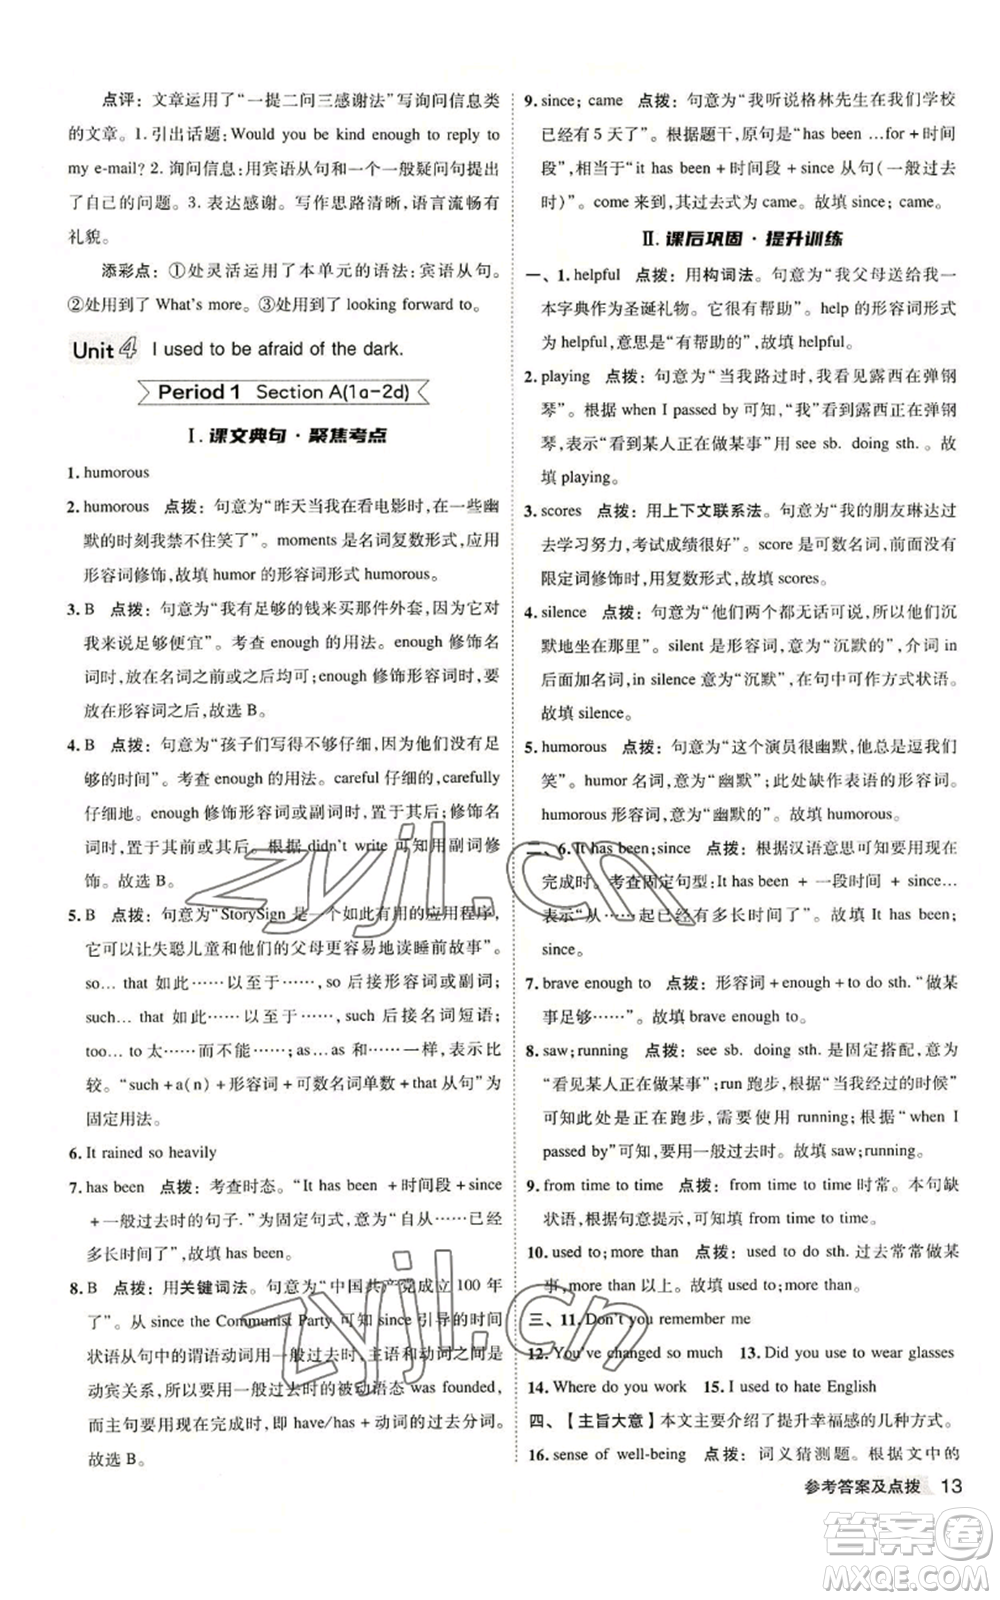 点评：文章运用了“一提二问三感谢法”写询问信息类
的文章。1. 引出话题：Would you be kind enough to reply to
my e-mail? 2. 询问信息：用宾语从句和一个一般疑问句提出
了自己的问题。3. 表达感谢。写作思路清晰，语言流畅有
礼貌。
添彩点：①处灵活运用了本单元的语法：宾语从句。
②处用到了 What's more。③处用到了 looking forward to。
Unit 4 I used to be afraid of the dark.
Period 1 Section A(1a-2d)
Ⅰ. 课文典句·聚焦考点
1. humorous
2. humorous 点拨：句意为“昨天当我在看电影时，在一些幽
默的时刻我禁不住笑了”。moments 是名词复数形式，应用
形容词修饰，故填 humor 的形容词形式 humorous。
3. B 点拨：句意为“我有足够的钱来买那件外套，因为它对
我来说足够便宜”。考查 enough 的用法。enough 修饰名
词时，放在名词之前或之后均可；enough 修饰形容词时，要
放在形容词之后，故选 B。
4. B 点拨：句意为“孩子们写得不够仔细，因为他们没有足
够的时间”。考查 enough 的用法。careful 仔细的；carefully
仔细地。enough 修饰形容词或副词时，置于其后；修饰名词
时，置于其前或其后。根据 didn't write 可知用副词修
饰。故选 B。
5. B 点拨：句意为“StorySign 是一个如此有用的应用程序，
它可以让失聪儿童和他们的父母更容易地读睡前故事”。
so… that 如此……以至于……，so 后接形容词或副词；
such… that 如此……以至于……，such 后接名词短语；
too… to 太……而不能……；as…as 和……一样，表示比
较。“such＋a(n)＋形容词＋可数名词单数＋that 从句”为
固定用法。
6. It rained so heavily
7. has been 点拨：考查时态。“It has been ＋时间段＋since
＋一般过去时的句子.”为固定句式，意为“自从……已经
多长时间了”，故填 has been。
8. B 点拨：用关键词法。句意为“中国共产党成立 100 年
了”。从 since the Communist Party 可知 since 引导的时间
状语从句中的谓语动词用一般过去时，主语和动词之间是
动宾关系，所以要用一般过去时的被动语态 was founded，
而主句要用现在完成时，即 have/has＋动词的过去分词。
故选 B。
9. since; came 点拨：句意为“我听说格林先生在我们学校
已经有 5 天了”。根据题干，原句是“has been …for＋时间
段”，相当于“it has been＋时间段＋since 从句（一般过去
时）”。come 来到，其过去式为 came。故填 since; came。
Ⅱ. 课后巩固·提升训练
一、1. helpful 点拨：用构词法。句意为“我父母送给我一
本字典作为圣诞礼物。它很有帮助”。help 的形容词形式
为 helpful，意思是“有帮助的”，故填 helpful。
2. playing 点拨：句意为“当我路过时，我看见露西在弹钢
琴”。根据 when I passed by 可知，“我”看到露西正在弹钢
琴，表示“看到某人正在做某事”用 see sb. doing sth.。故
填 playing。
3. scores 点拨：用上下文联系法。句意为“我的朋友琳达过
去学习努力，考试成绩很好”。score 是可数名词，前面没有
限定词修饰时，用复数形式，故填 scores。
4. silence 点拨：句意为“他们两个都无话可说，所以他们沉
默地坐在那里”。silent 是形容词，意为“沉默的”，介词 in
后面加名词，in silence 意为“沉默”，在句中可作方式状语。
故填 silence。
5. humorous 点拨：句意为“这个演员很幽默，他总是逗我们
笑”。humor 名词，意为“幽默”；此处缺作表语的形容词。
humorous 形容词，意为“幽默的”。故填 humorous。
二、6. It has been; since 点拨：根据汉语意思可知要用现在
完成时。考查固定句型：It has been ＋ 一段时间＋since…
表示“从……起已经有多长时间了”。故填 It has been;
since。
7. brave enough to 点拨：形容词＋enough＋to do sth.“做某
事足够……”。故填 brave enough to。
8. saw; running 点拨：see sb. doing sth. 是固定搭配，意为
“看见某人正在做某事”；run 跑步，根据“当我经过的时候”
可知此处是正在跑步，故要使用 running；根据“when I
passed by”可知，要用一般过去时。故填 saw; running。
9. from time to time 点拨：from time to time 时常。本句缺
状语，根据句意提示，可知填 from time to time。
10. used to; more than 点拨：used to do sth. 过去常常做某
事，more than 以上。故填 used to; more than。
三、11. Don't you remember me
12. You've changed so much 13. Did you use to wear glasses
14. Where do you work 15. I used to hate English
四、【主旨大意】本文主要介绍了提升幸福感的几种方式。
16. sense of well-being 点拨：词义猜测题。根据文中的
参考答案及点拨 13
zyjl.cn
zyjl.cn
答案卷
MXQE.COM